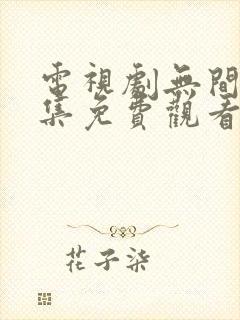 電視劇無間
集免費觀看
花子柒